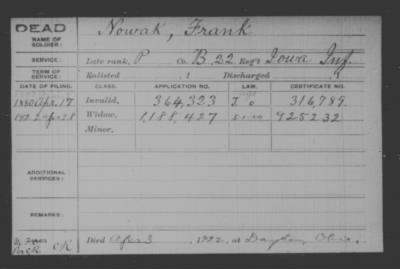 DEAD
Nowak, Frank
NAME OF SOLDIER:
SERVICE: Late rank, P Co. B, 22 Reg't Iowa Inf.
TERM OF SERVICE: Enlisted , 1 Discharged , 1
DATE OF FILING. CLASS. APPLICATION NO. LAW. CERTIFICATE NO.
1880 Apr. 17 Invalid, 364,323 316,789
1922 Apr 28 Widow, 1,188,427 925232
Minor,
ADDITIONAL SERVICES:
REMARKS:
Died Apr 3, 1922, at Dayton, Ohio.